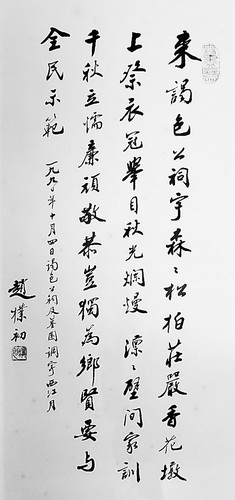 來謁包公祠宇森森松柏莊嚴香花墩
上祭衣冠舉目秋光爛熳凛凛壁間家訓
千秋立懦廉頑敬恭豈獨為鄉賢要與
全民示範
一九九〇年十月四日謁包公祠及墓園調寄西江月
趙樸初